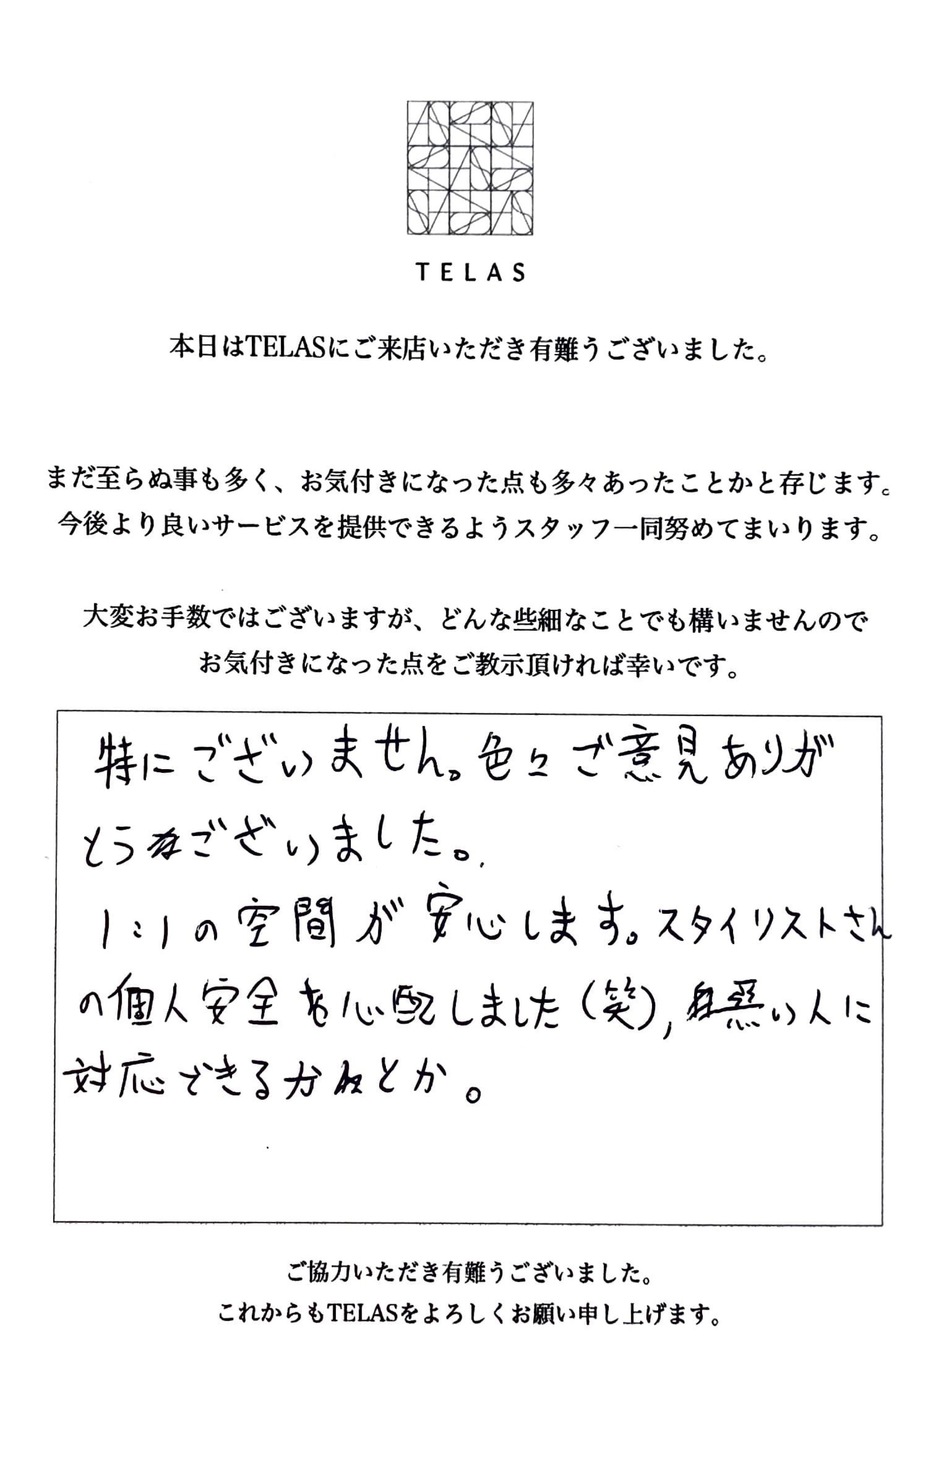 TELAS
本日はTELASにご来店いただき有難うございました。
まだ至らぬ事も多く、お気付きになった点も多々あったことかと存じます。
今後より良いサービスを提供できるようスタッフ一同努めてまいります。
大変お手数ではございますが、どんな些細なことでも構いませんので
お気付きになった点をご教示頂ければ幸いです。
特にございません。色々ご意見ありが
とうございました。
1:1の空間が安心します。スタイリストさん
の個人安全も心配しました(笑), 悪い人に
対応できるかとか。
ご協力いただき有難うございました。
これからもTELASをよろしくお願い申し上げます。